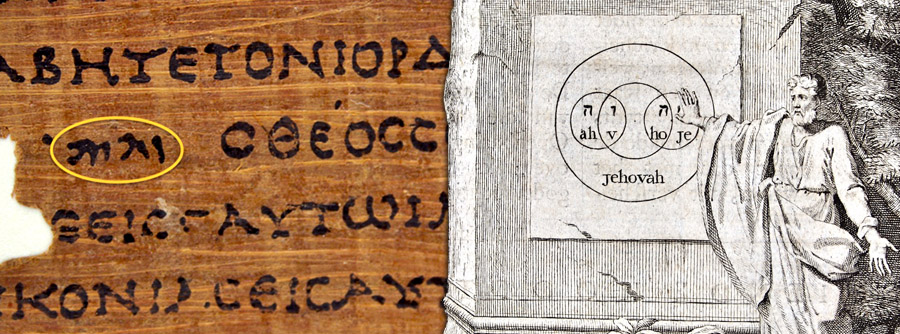 ΑΒΗΤΕΤΟΝΙΟΡΔ
יהוה ϹΘΕΟϹϹ
ΑΥΤΩΙ
ΚΟΝΙ ϹΕΙϹΑΥΤ
י ה ו ה
ah v ho je
Jehovah